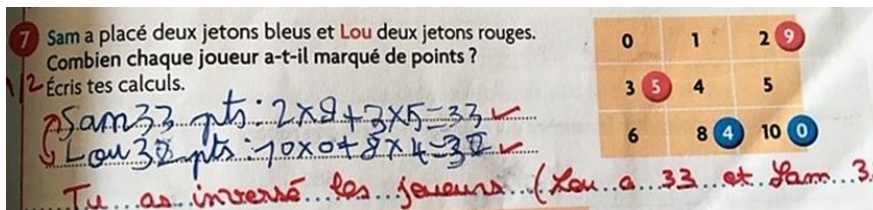 7 Sam a placé deux jetons bleus et Lou deux jetons rouges.
Combien chaque joueur a-t-il marqué de points ?
1/2 Écris tes calculs.
Sam 33 pts : 2×9+3×5=33
Lou 32 pts : 10×0+8×4=32
Tu as inversé les joueurs (Lou a 33 et Sam 3
0 1 2 9
3 5 4 5
6 8 4 10 0